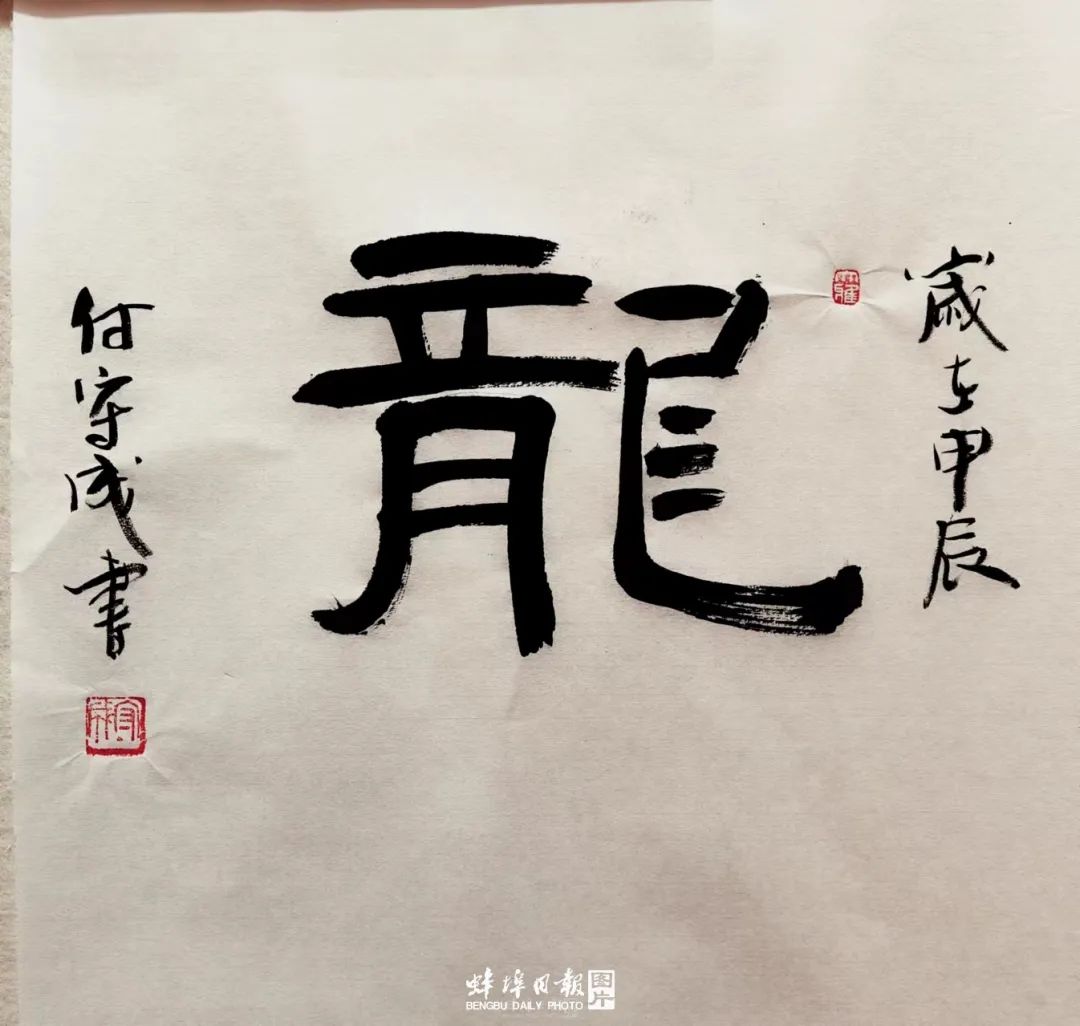 歲在甲辰
龍
付守成書
蚌埠日報 图片
BENGBU DAILY PHOTO